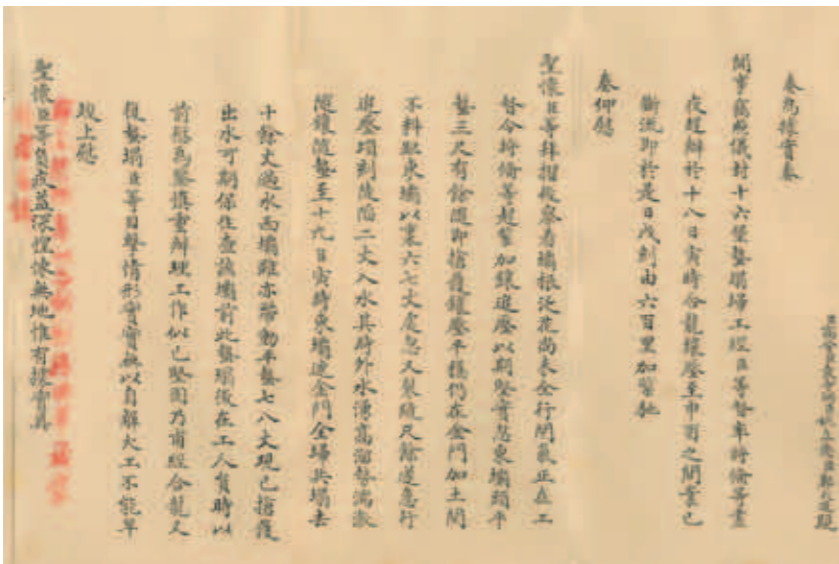 奏為據實奏
聞事竊照儀封十六堡蟄塌埽工經臣等督率時倫等晝
夜趕辦於十八日寅時合龍鑲壓至申酉之間業已
斷流即於是日戌刻由六百里加緊馳
奏仰慰
聖懷臣等拜摺後察看壩根泛花尚未全行閉氣正在工
督令時倫等趕緊加鑲進壓以期堅實忽東壩頭平
蟄三尺有餘隨即搶護鑲壓平穩仍在金門加土閉
不料距東壩以東六七丈處忽又裂縫尺餘遂急行
進壓頃刻陡陷二丈入水其時外水湧高溜勢湍激
隨鑲隨蟄至十九日寅時東壩連金門全埽共塌去
十餘丈過水西壩雖亦帶動平蟄七八丈現已搶護
出水可期保住查該壩前此蟄塌後在工人員時以
前轍為鑒慎重辦理工作似已堅固乃甫經合龍又
復蟄塌臣等目擊情形實實無以自解大工不能早
竣上慰
聖懷臣等負疚益深惶悚無地惟有據實具